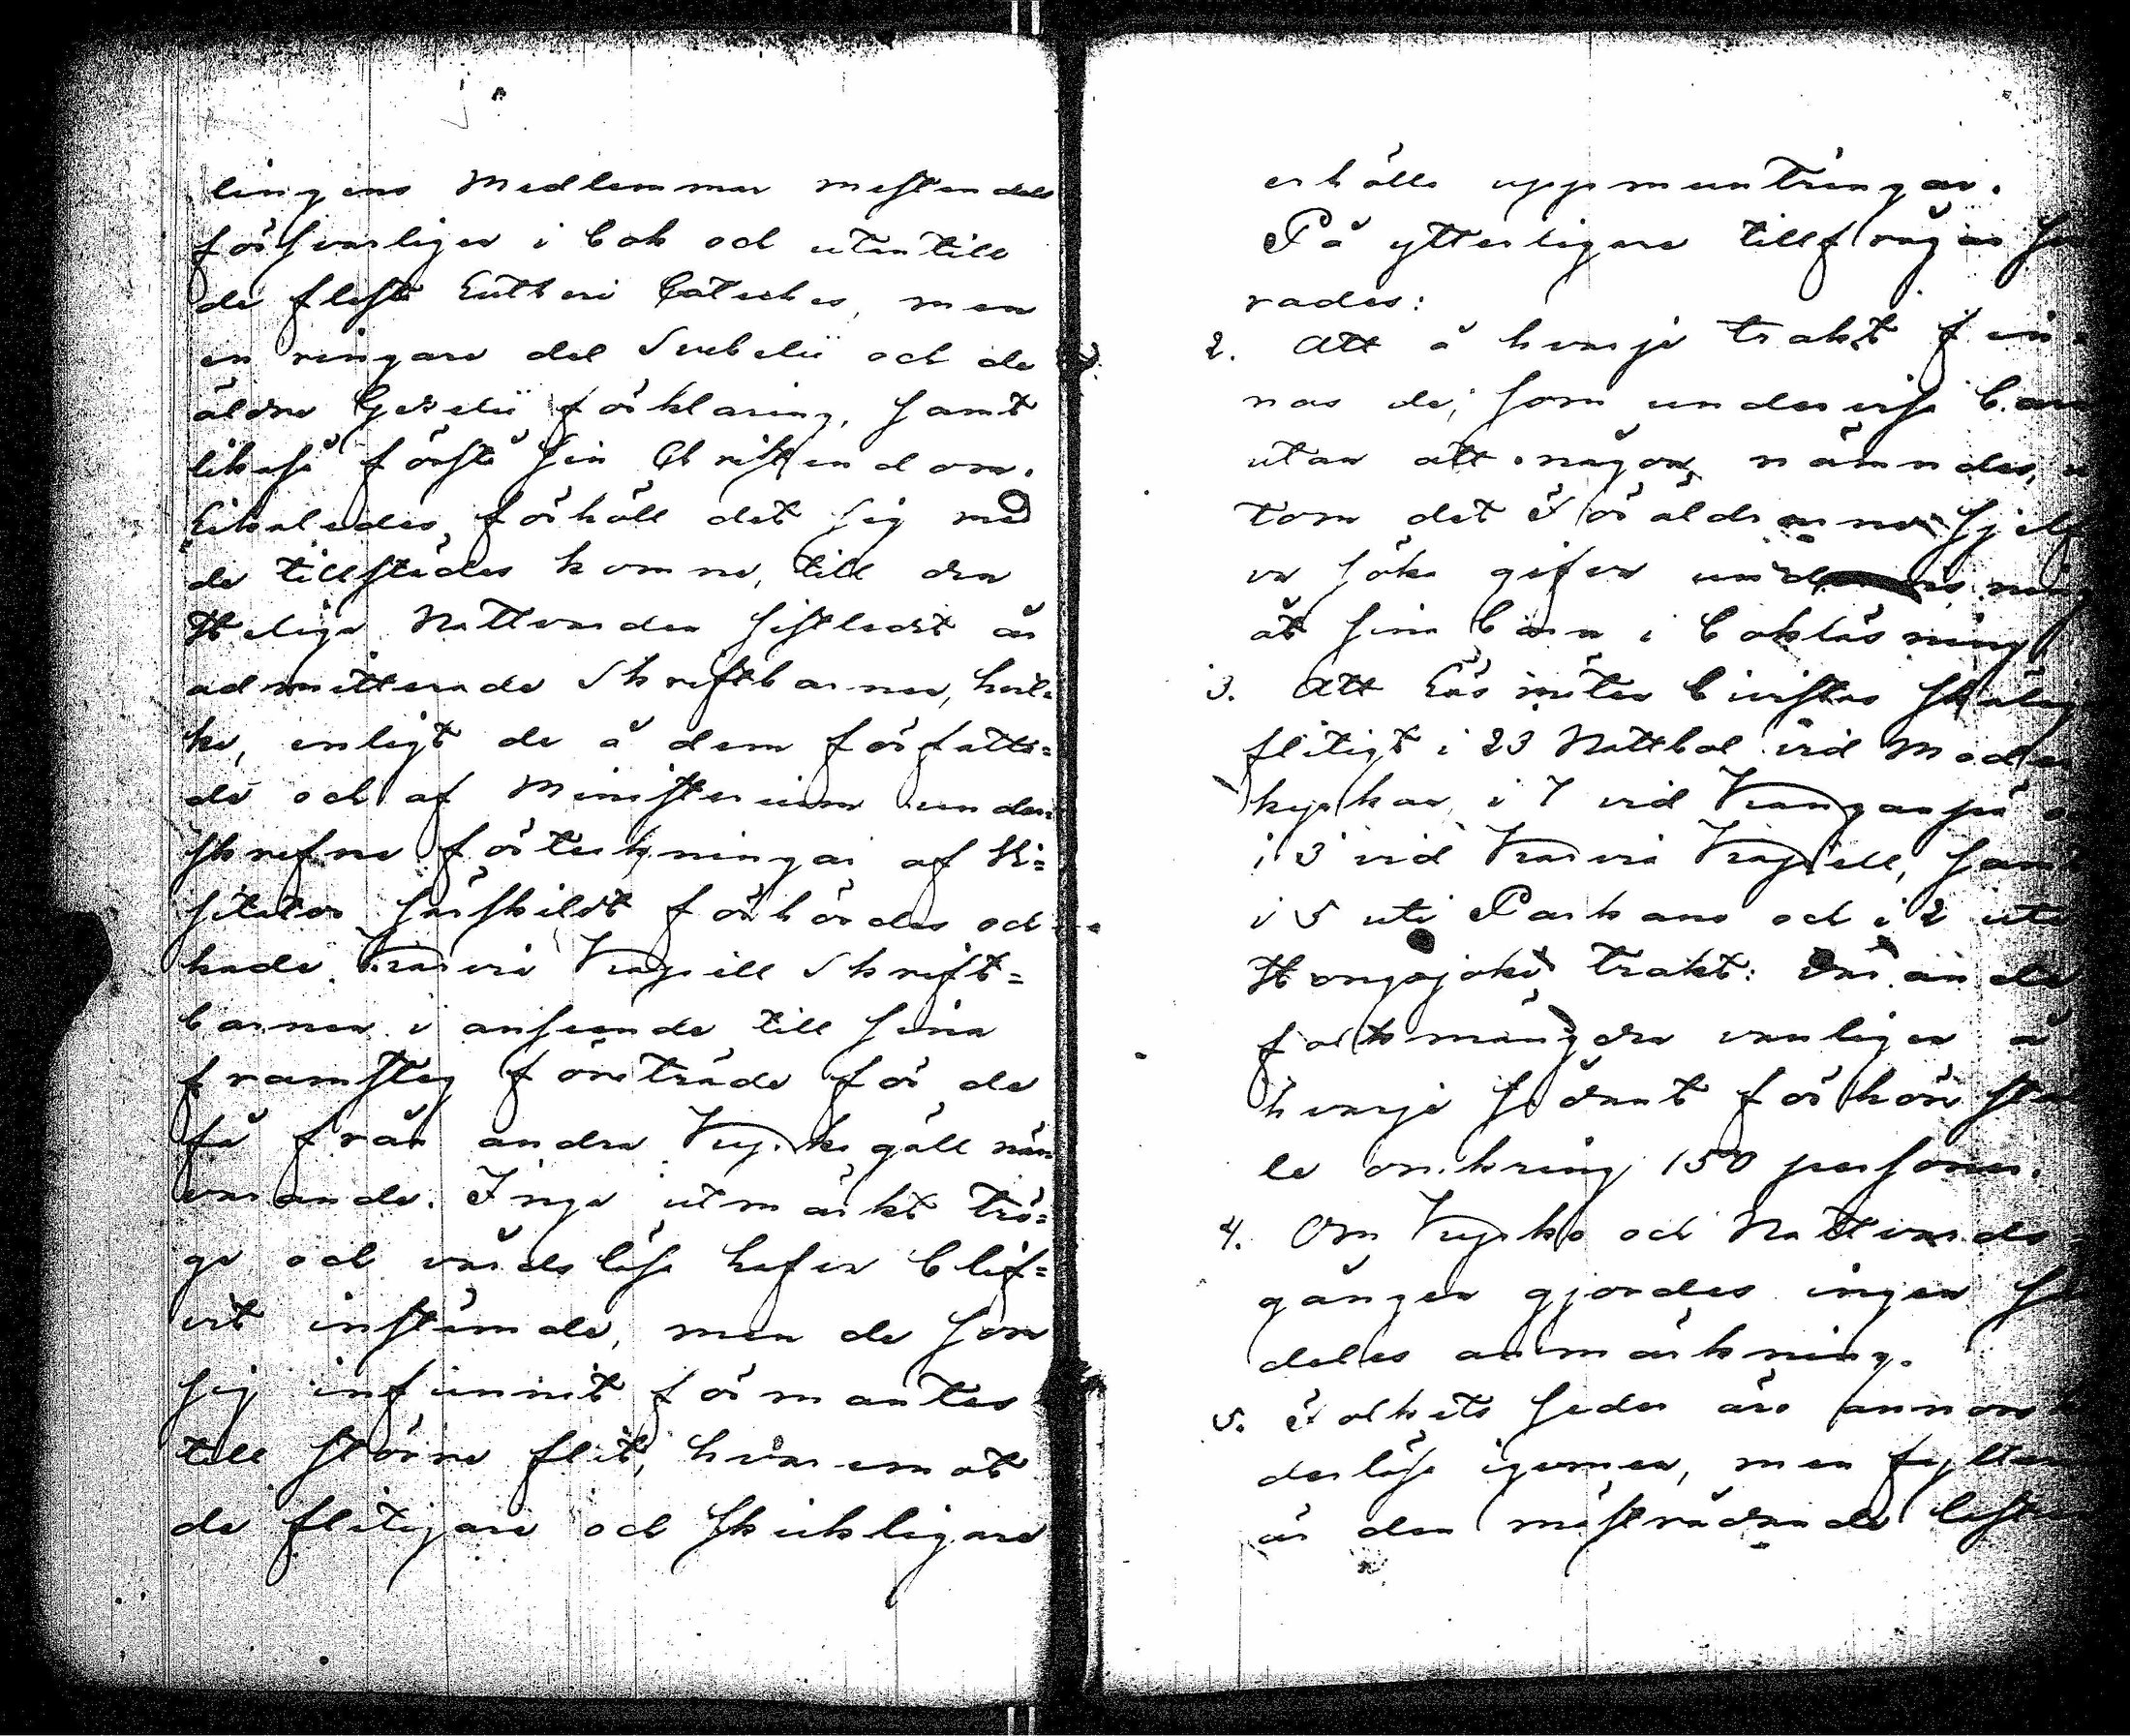 lingens Medlemmar mestendels
försvarligen i bok och utantill
de fleste Lutheri Cateches, men
en ringare del Svebelii och de
äldre Gezelii förklaring, samt
likaså förstå sin Christendom.
Likaledes förhöll det sig med
de tillstädes komne, till den
Heliga Nattvarden sistledit år
admitterade Skriftbarnen, hvil=
ke, enligt de å dem författa=
de och af Ministerium under=
skrefne förtekningar af Vi=
sitator särskildt förhördes och
hade Karvia Kapell Skrift=
barnen i anseende till sina
framsteg företräde för de
få från andra Kyrko gäll när
varande. Inga utmärkt trö=
ge och vårdslösa hafva blif=
vit instämde, men de som
sig infunnit förmantes
till större flit, hvaremot
de flitigare och skickligare
erhölle uppmuntringar.
På ytterligare tillfrågan
rades:
2. Att å hvarje trakt fin=
nas de, som undervisa barn
utan att någon nämndes,
tom det Föräldrarne sjelf
va söka gifva undervisning
åt sina barn i bokläsning
3. Att Läs möten bevistas
flitigt i 23 Nattbol vid Moder
kyrkan, i 7 vid Kangaspä
i 3 vid Karvia Kapell, samt
i 5 uti Parkano och i 2 uti
Hongojoki trakt:
folkmängden vanligen å
hvarje sådant förhörs stäl
le omkring 150 personer.
4. Om Kyrko och Nattvards=
gången gjordes ingen
deles anmärkning.
5. Folkets seder äro annors
derlösa igemen, men fylleri
är den mäst rådande lasten